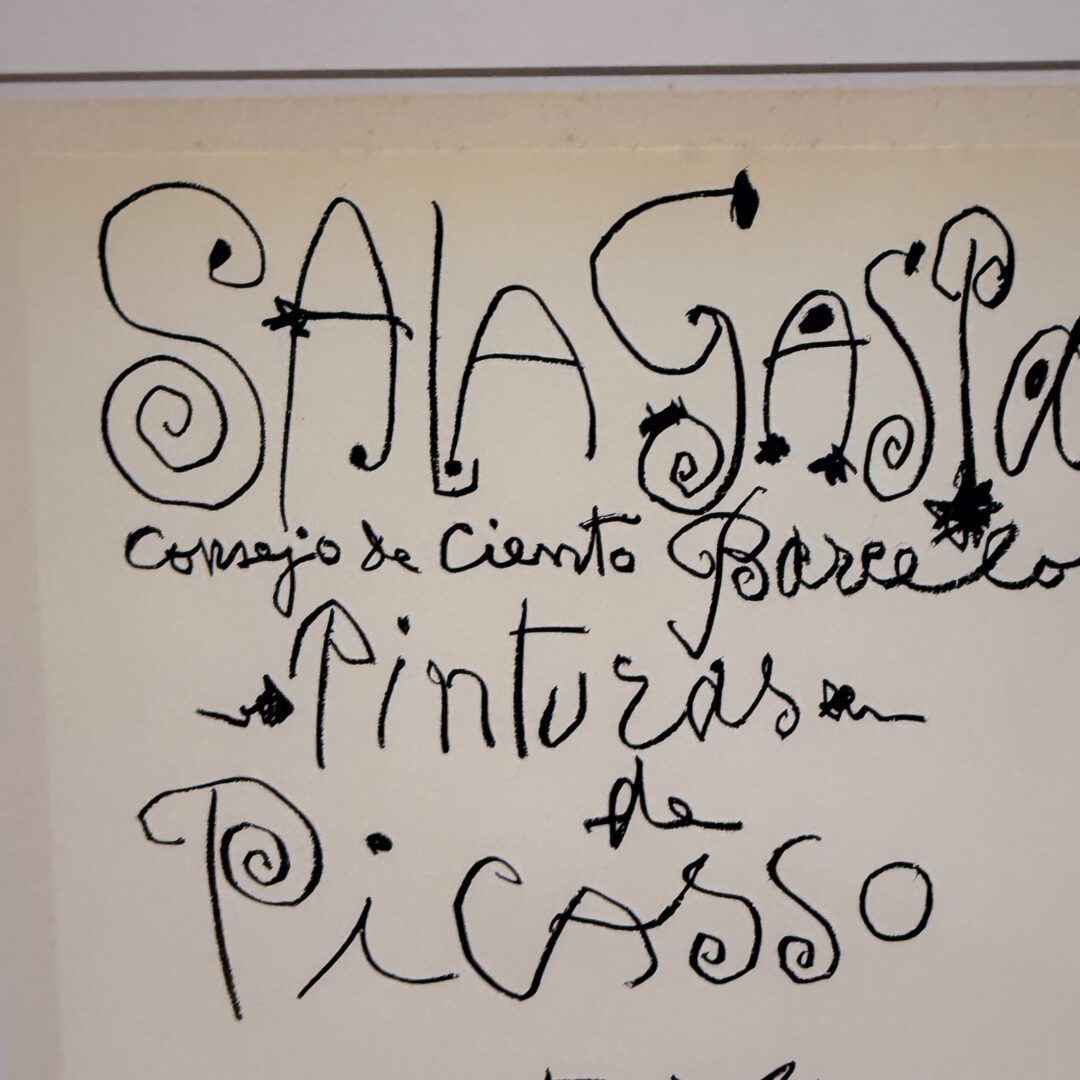 SALA GASPa
Consejo de Ciento Barcelo
Pinturas
de
Picasso